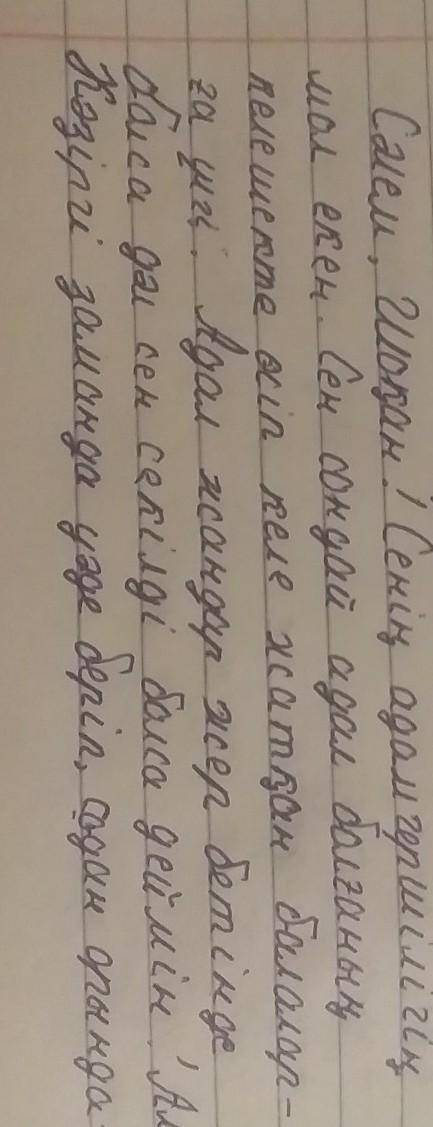 Сәлем, Шоқан! Сенің адамгершілігің
мол екен. Сен сондай адал болғаның
келешекте өсіп келе жатқан балалар-
ға үлгі. Адал жандар жер бетінде
болса да сен секілді болса деймін! Ал
Қазіргі заманда уәде беріп, содан орында-